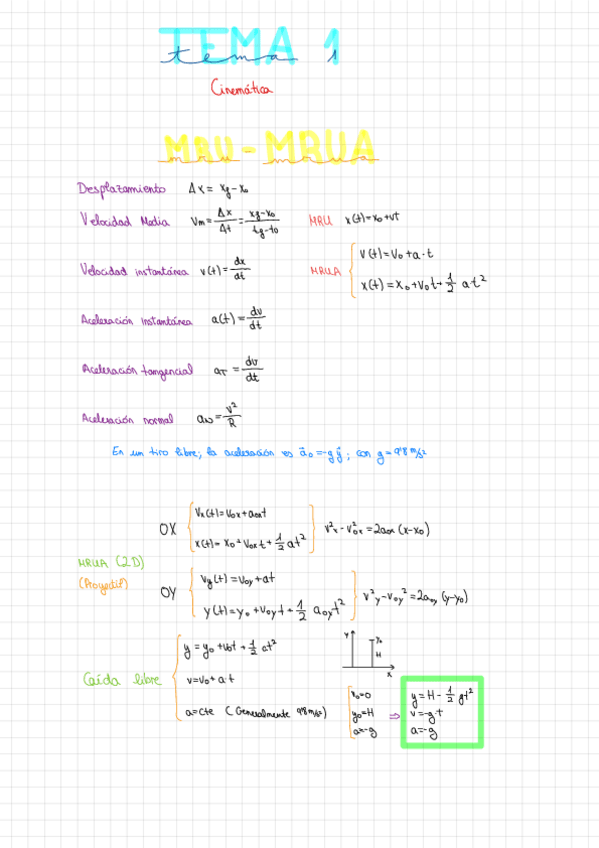 TEMA 1
tema 1
Cinemática
MRU-MRUA
mru-mrua
Desplazamiento Δx = xf-x0
Velocidad Media Vm = Δx/Δt = xf-x0/tf-t0 MRU x(t)=x0+vt
Velocidad instantánea v(t)= dx/dt MRUA v(t)=v0+a·t
x(t)=x0+v0t+1/2 at²
Aceleración instantánea a(t)= dv/dt
Aceleración tangencial aT = dv/dt
Aceleración normal aN= v²/R
En un tiro libre; la aceleración es a0=-gj; con g=9'8 m/s²
MRUA (2D)
(Proyectil)
OX Vx(t)=V0x+a0xt
x(t)=x0+V0xt+1/2 at² v²x-v²0x=2a0x(x-x0)
OY Vy(t)=V0y+at
y(t)=y0+v0yt+1/2 a0yt² v²y-v0y²=2a0y(y-y0)
Caída libre y=y0+v0t+1/2 at²
v=v0+a·t
a=cte (Generalmente 9'8 m/s²)
Y y0
H
X
x0=0
y0=H ⇒
a=-g
y=H-1/2 gt²
v=-gt
a=-g